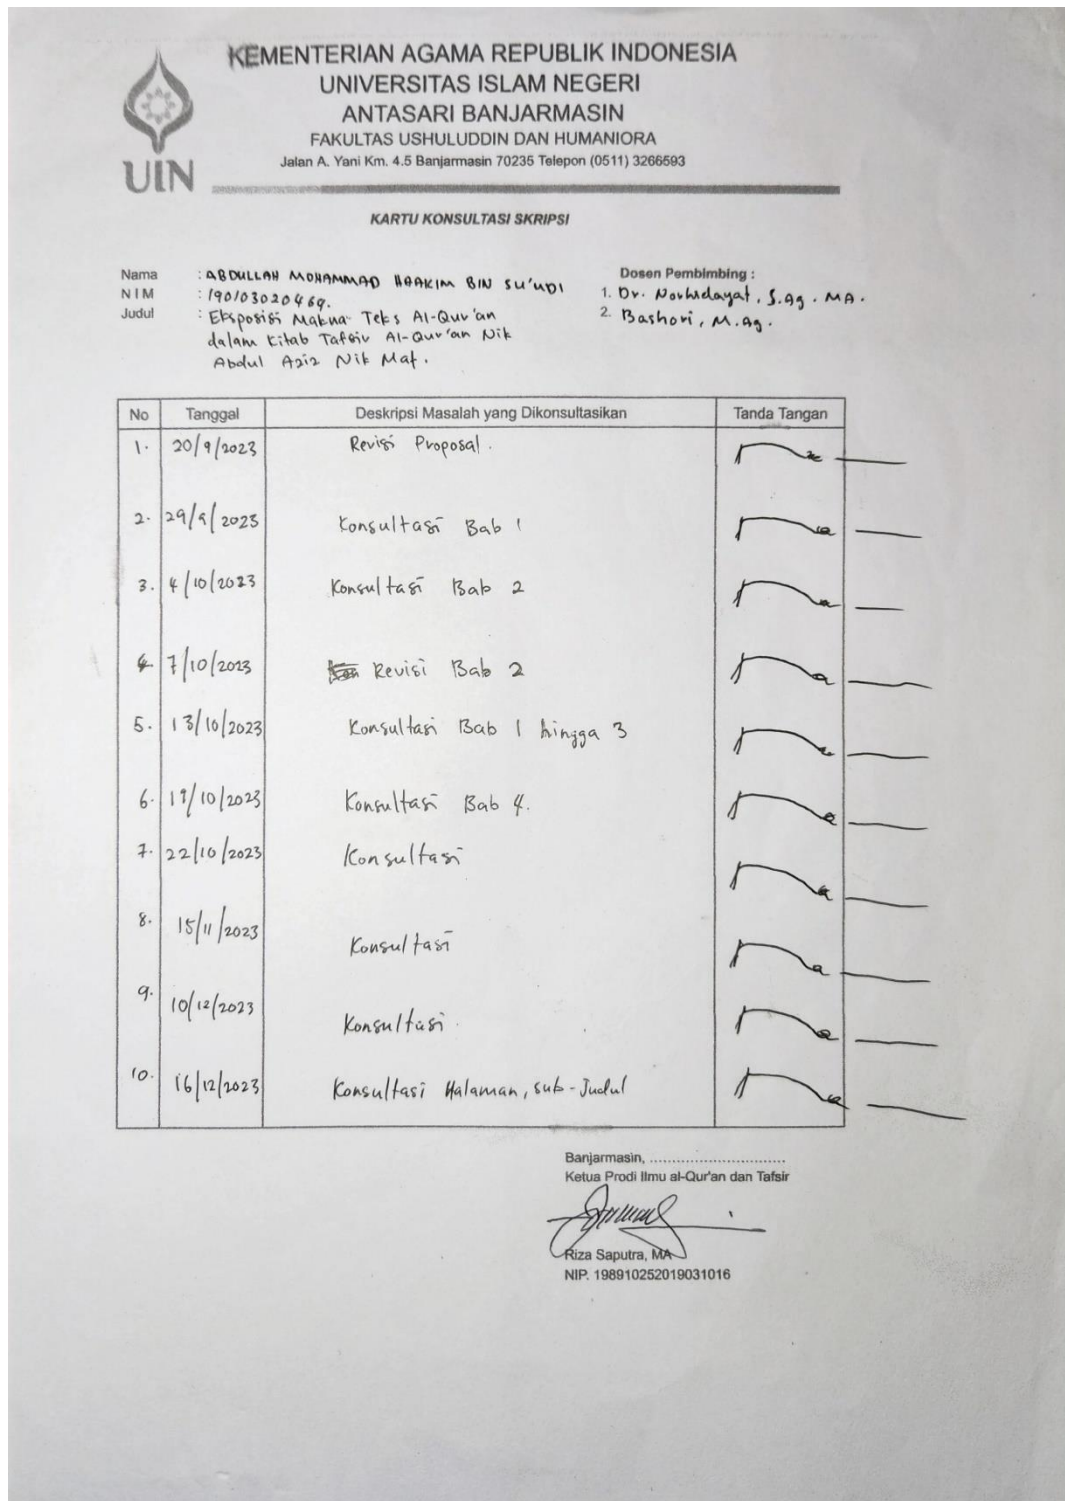 KEMENTERIAN AGAMA REPUBLIK INDONESIA
UNIVERSITAS ISLAM NEGERI
ANTASARI BANJARMASIN
FAKULTAS USHULUDDIN DAN HUMANIORA
Jalan A. Yani Km. 4.5 Banjarmasin 70235 Telepon (0511) 3266593
UIN
KARTU KONSULTASI SKRIPSI
Nama : ABDULLAH MOHAMMAD HAAKIM BIN SU'UDI
NIM : 190103020469.
Judul : Eksposisi Makna Teks Al-Qur'an
dalam Kitab Tafsir Al-Qur'an Nik
Abdul Aziz Nik Mat.
Dosen Pembimbing :
1. Dr. Norhidayat, S.Ag. MA.
2. Bashori, M.Ag.
No Tanggal Deskripsi Masalah yang Dikonsultasikan Tanda Tangan
1. 20/9/2023 Revisi Proposal.
2. 29/9/2023 Konsultasi Bab 1
3. 4/10/2023 Konsultasi Bab 2
4 7/10/2023 Revisi Bab 2
5. 13/10/2023 Konsultasi Bab 1 hingga 3
6. Konsultasi Bab 4.
7. 22/10/2023 Konsultasi
8. 15/11/2023 Konsultasi
9. 10/12/2023 Konsultasi.
10. 16/12/2023 Konsultasi Halaman, sub-Judul
Banjarmasin, ..............................
Ketua Prodi Ilmu al-Qur'an dan Tafsir
Riza Saputra, MA
NIP. 198910252019031016